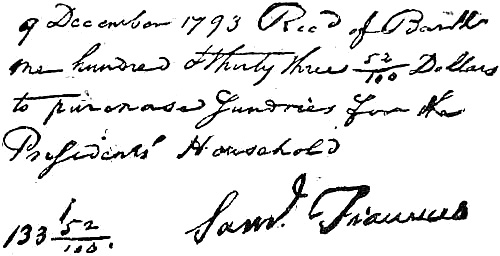 9 December 1793 Rec'd of Barth
one hundred & thirty three 52/100 Dollars
to purchase Sundries for the
Presidents' Household
133 52/100. Sam'l. Fraunces